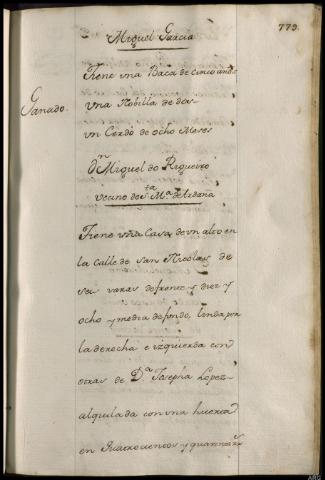 773.
Miguel Garcia
Ganado.
Tiene una Baca de cinco años
una Nobilla de dos
un Cerdo de ocho Meses
Dn Miguel do Rigueiro
vecino de Sta Ma de Ardaña
Tiene una Casa de un alto en
la Calle de San Nicolas de
seis varas de frente y diez y
ocho y media de fondo, linda por
la derecha e izquierda con
otras de Da Josepha Lopez
alquilada con una huerta
en Quatrocientos y quarenta Rs